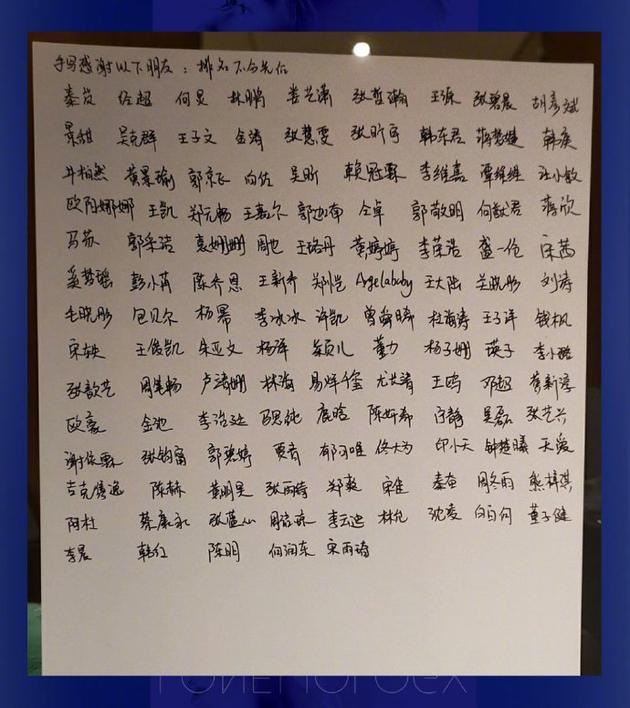 手写感谢以下朋友：排名不分先后
秦岚 经超 何炅 林鹏 娄艺潇 张哲瀚 王源 张碧晨 胡彦斌
景甜 吴克群 王子文 金涛 张慧雯 张昕宇 韩东君 蒋梦婕 韩庚
井柏然 黄景瑜 郭京飞 向佐 吴昕 赖冠霖 李维嘉 谭维维 汪小敏
欧阳娜娜 王凯 郑元畅 王嘉尔 郭迦南 仝卓 郭敬明 何猷君 蒋欣
马苏 郭采洁 袁姗姗 周也 王珞丹 黄婷婷 李荣浩 盛一伦 宋茜
奚梦瑶 彭小苒 陈乔恩 王新乔 郑恺 Angelababy 王大陆 关晓彤 刘涛
毛晓彤 包贝尔 杨幂 李冰冰 许凯 曾舜晞 杜海涛 王子洋 钱枫
宋轶 王俊凯 朱亚文 杨洋 颖儿 董力 杨子姗 瑛子 李小璐
张歆艺 周笔畅 卢靖姗 林海 易烊千玺 尤长靖 王鸥 邓超 黄新淳
欧豪 金池 李治廷 马思纯 鹿晗 陈妍希 闫静 吴磊 张艺兴
谢依霖 张钧甯 郭碧婷 贾青 郁可唯 佟大为 印小天 钟楚曦 天爱
吉克隽逸 陈赫 黄明昊 张雨绮 郑爽 宋佳 秦奋 周冬雨 熊梓淇
阿杜 蔡康永 张蓝心 周依琼 李云迪 林允 沈凌 白百何 董子健
李晨 韩红 陈明 何润东 宋雨琦